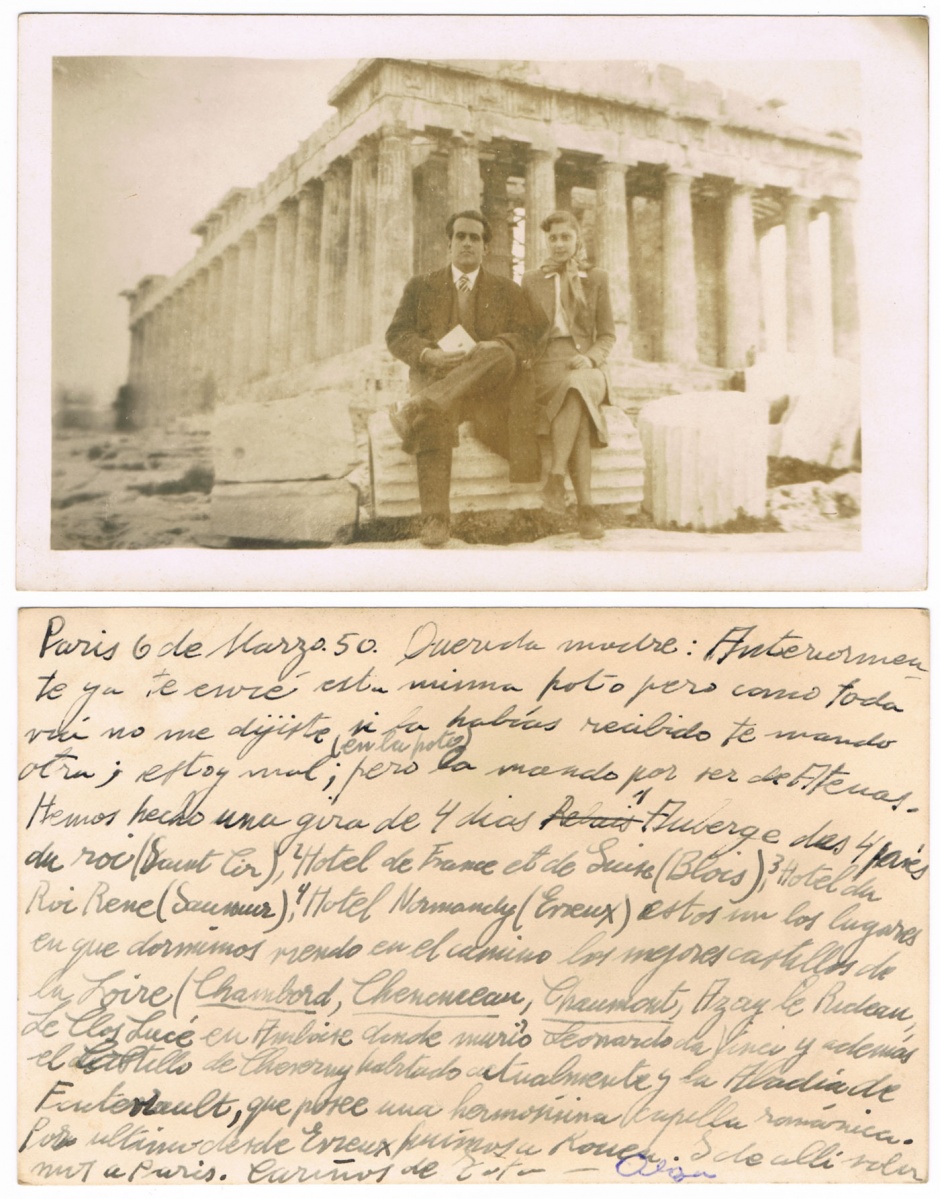 Paris 6 de Marzo. 50. Querida madre: Anteriormen
te ya te envié esta misma foto pero como toda
vía no me dijiste si la habías recibido te mando
otra; estoy mal (en la foto); pero la mando por ser de Atenas.
Hemos hecho una gira de 4 dias Relais 1 Auberge des 4
du roi (Saint Cir), 2 Hotel de France et de Guise (Blois), 3 Hotel du
Roi Rene (Saumur), 4 Hotel Normandy (Evreux) estos los lugares
en que dormimos viendo en el camino los mejores castillos de
la Loire (Chambord, Chenonceau, Chaumont, Azay le Rideau,
Le Clos Lucé en Amboise donde murió Leonardo da Vinci y además
el Castillo de Cheverny habitado actualmente y la Abadía de
que posee una hermosísima capilla románica.
Por ultimo desde Evreux fuimos a Rouen. de alli volvi
mos a Paris. Cariños de